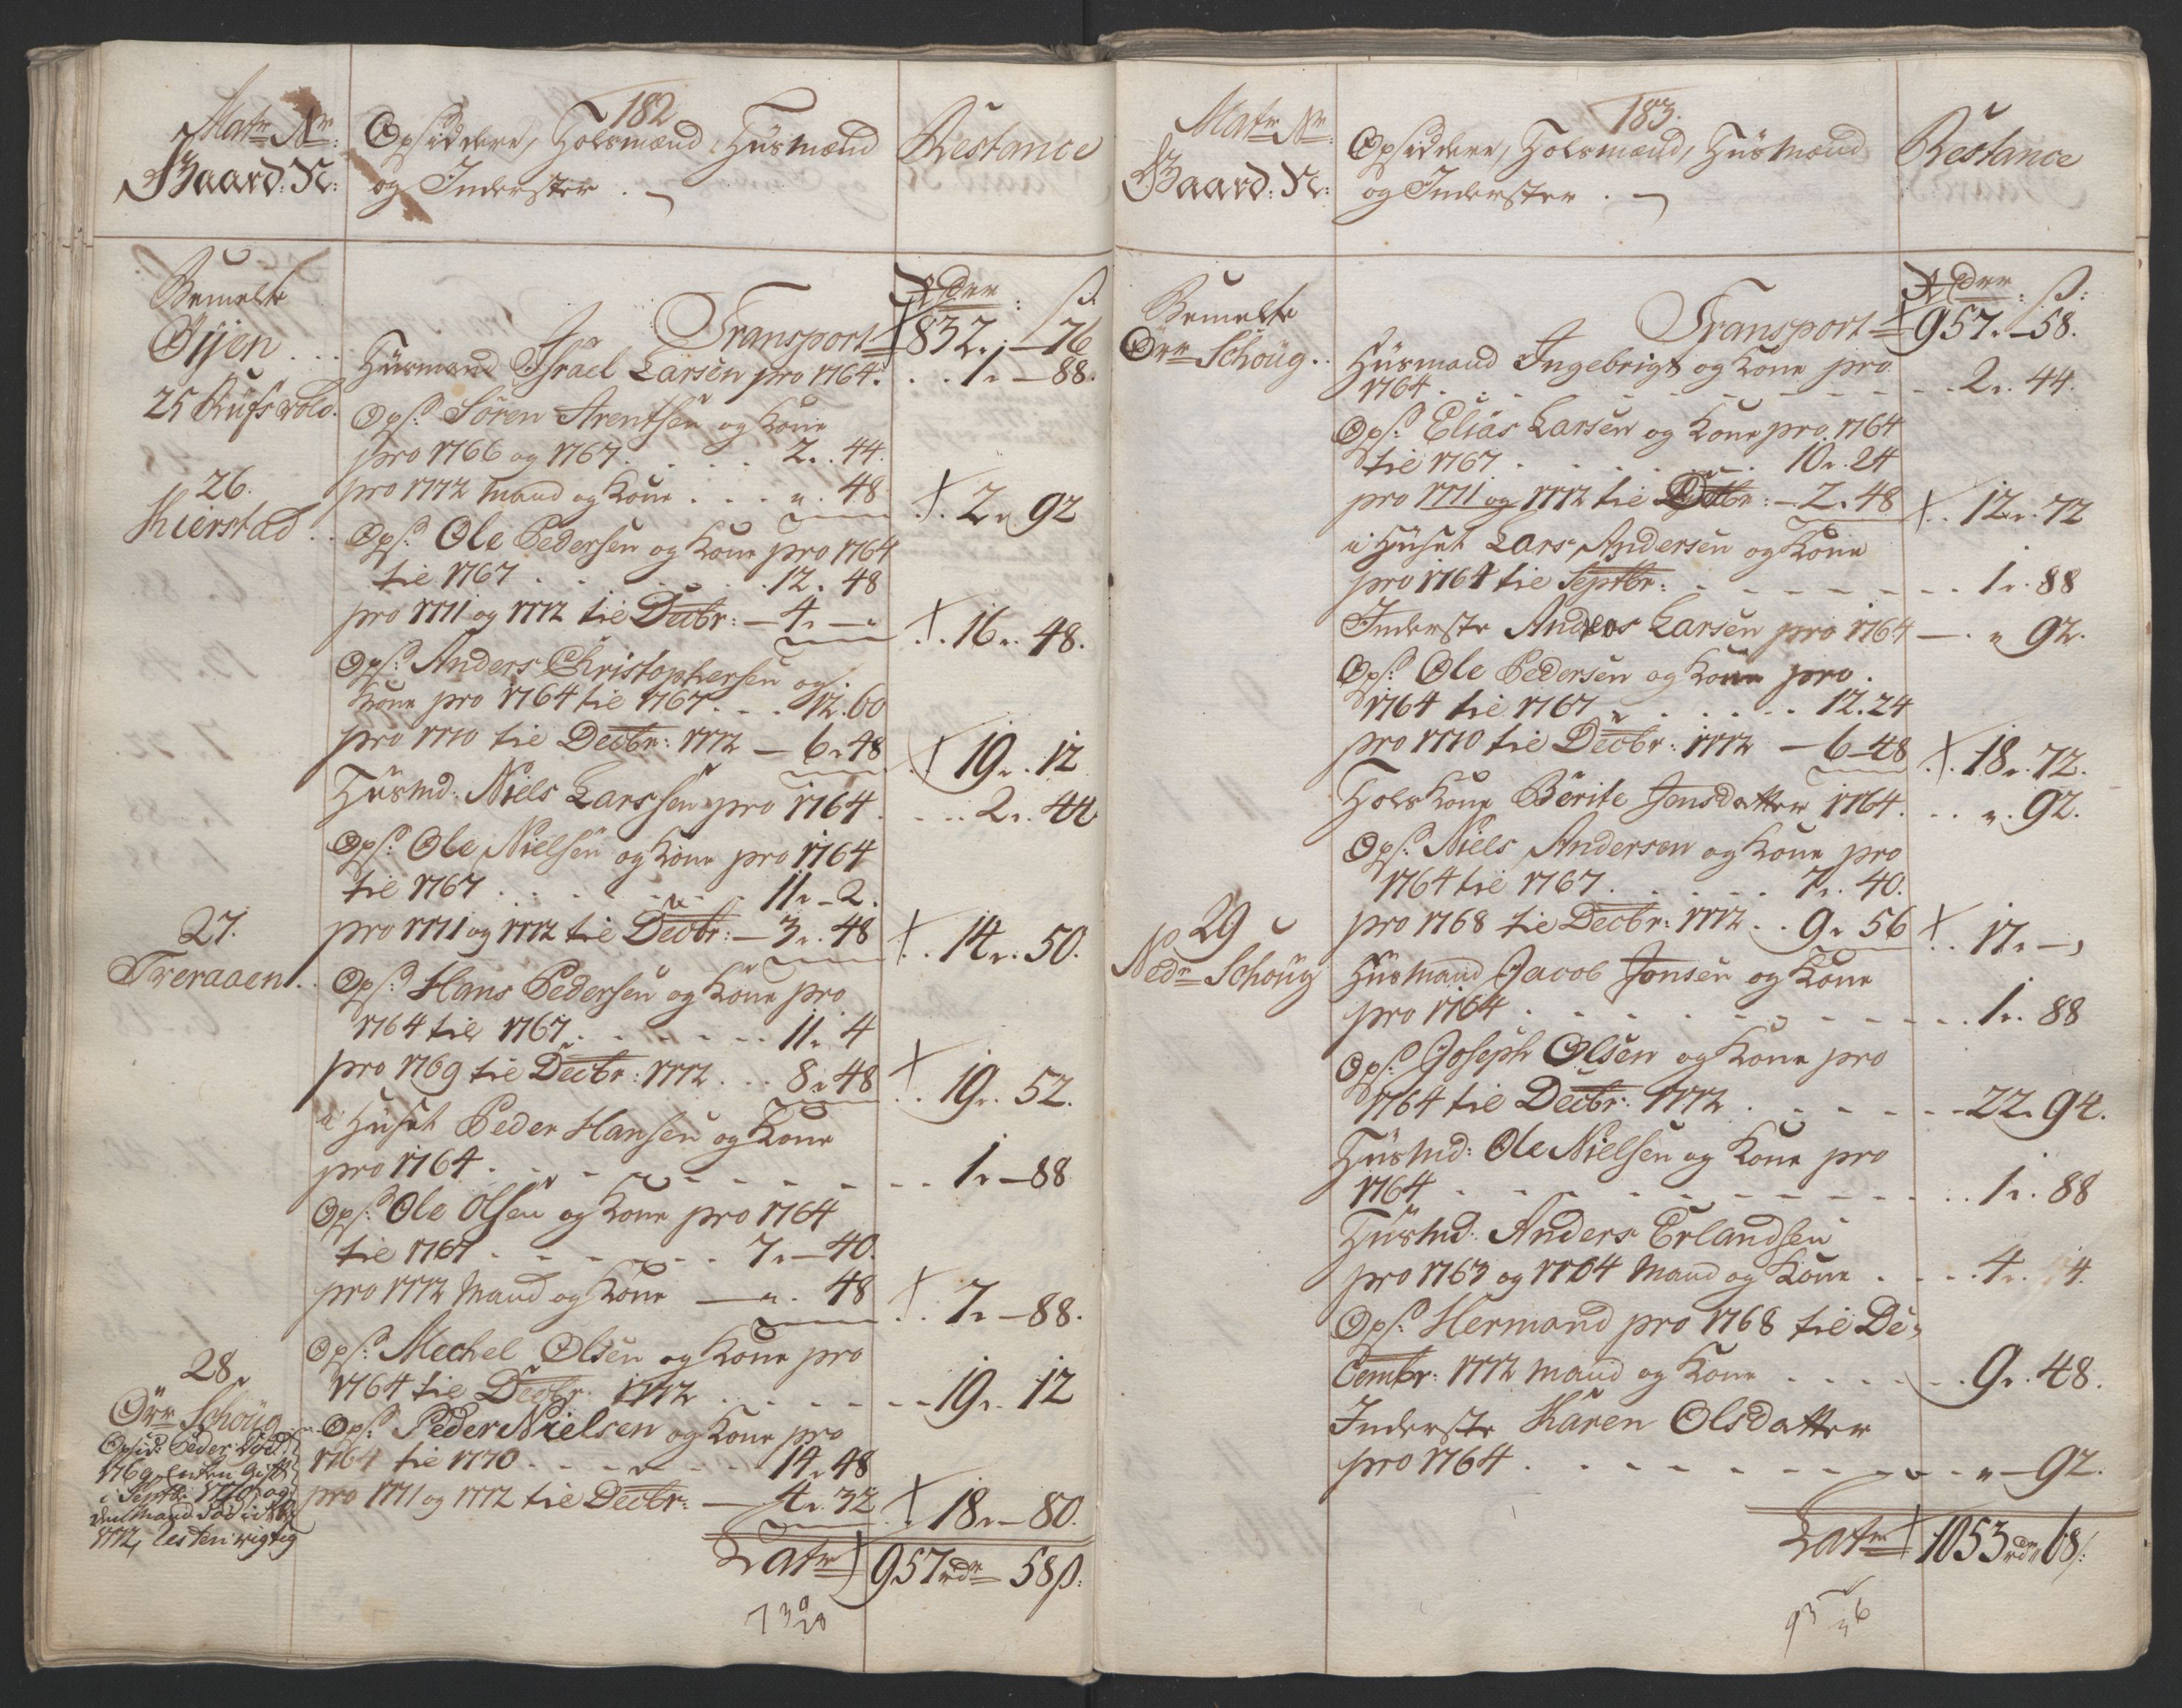 182
Matr Nr:
Gaard: N:
Opsiddere, Holsmænd, Huusmænd
og Inderster.
Restance
Bemelte
Øyen
Rdr: ß:
Transport 832.-76
Huusmand Israel Larsen pro 1764. 1.-88.
25 Rufsvold.
Ops: Sören Arentsen og Kone
pro 1766 og 1767. 2. 44.
pro 1772 Mand og Kone . . . ". 48 2. 92
26.
Kierstad
Ops: Ole Pedersen og Kone pro 1764
til 1767 . . . 12. 48
pro 1771 og 1772 til Decbr: - 4. - " 16. 48.
Ops: Anders Christophersen og
Kone pro 1764 til 1767. . . 12. 60
pro 1770 til Decbr: 1772 - 6. 48 19. 12
Huusmd: Niels Larssen pro 1764. 2. 44
Ops: Ole Nielsen og Kone pro 1764
til 1767 . . . 11. - 2.
pro 1771 og 1772 til Decbr: - 3. 48 14. 50.
27.
Treraaen.
Ops: Hans Pedersen og Kone pro
1764 til 1767. . . 11. 4
pro 1769 til Decbr: 1772. . . 8. 48 19. 52.
i Huset Peder Hansen og Kone
pro 1764. - - - 1. -88
Ops: Ole Olsen og Kone pro 1764
til 1767 - - - 7. - 40.
pro 1772 Mand og Kone - ". 48 7. -88.
Ops: Mechel Olsen og Kone pro
1764 til Decbr: 1772 . . . 19. 12
28.
Övr Schoug
Opsid: Peder Död
1769, Enken gift
i Septb: 1770, og
den Mand Död i
1772, resten rigtig
Ops: Peder Nielsen og Kone pro
1764 til 1770 - - - 14. 48
pro 1771 og 1772 til Decbr: - 4. 32 18. -80.
Latr 957 rdr 58 ß:
183.
Matr Nr:
Gaard: N:
Opsiddere, Holsmænd, Huusmænd
og Inderster.
Restance
Bemelte
Övr Schoug.
Rdr: ß:
Transport 957.-58.
Huusmand Ingebrigt og Kone pro
1764 - - - 2. 44.
Ops: Elias Larsen og Kone pro 1764
til 1767 . . . 10. 24
pro 1771 og 1772 til Decbr: - 2. 48 12. 72
i Huset Lars Andersen og Kone
pro 1764 til Septbr: - - - 1. 88
Inderste Anders Larsen pro 1764 - . " 92.
Ops: Ole Pedersen og Kone pro
1764 til 1767 . . . 12. 24
pro 1770 til Decbr: 1772 - 6-48 18. 72.
Holskone Börite Jensdatter 1764. . . ". 92.
Ops: Niels Andersen og Kone pro
1764 til 1767. . . 7. 40.
pro 1768 til Decbr: 1772. . 9. 56 17. -
29
Nedr Schoug
Huusmand Jacob Jonsen og Kone
pro 1764 . . . 1. 88
Ops: Joseph Olsen og Kone pro
1764 til Decbr: 1772 . . . 22. 94.
Huusmd: Ole Nielsen og Kone pro
1764 - - - 1. 88
Huusmd: Anders Erlandsen
pro 1763 og 1764 Mand og Kone . . . 4. 4.
Ops: Hermand pro 1768 til De-
cembr: 1772 Mand og Kone . . . 9. 48.
Inderste Karen Olsdatter
pro 1764 . . . " -92.
Latr 1053 rdr 68: